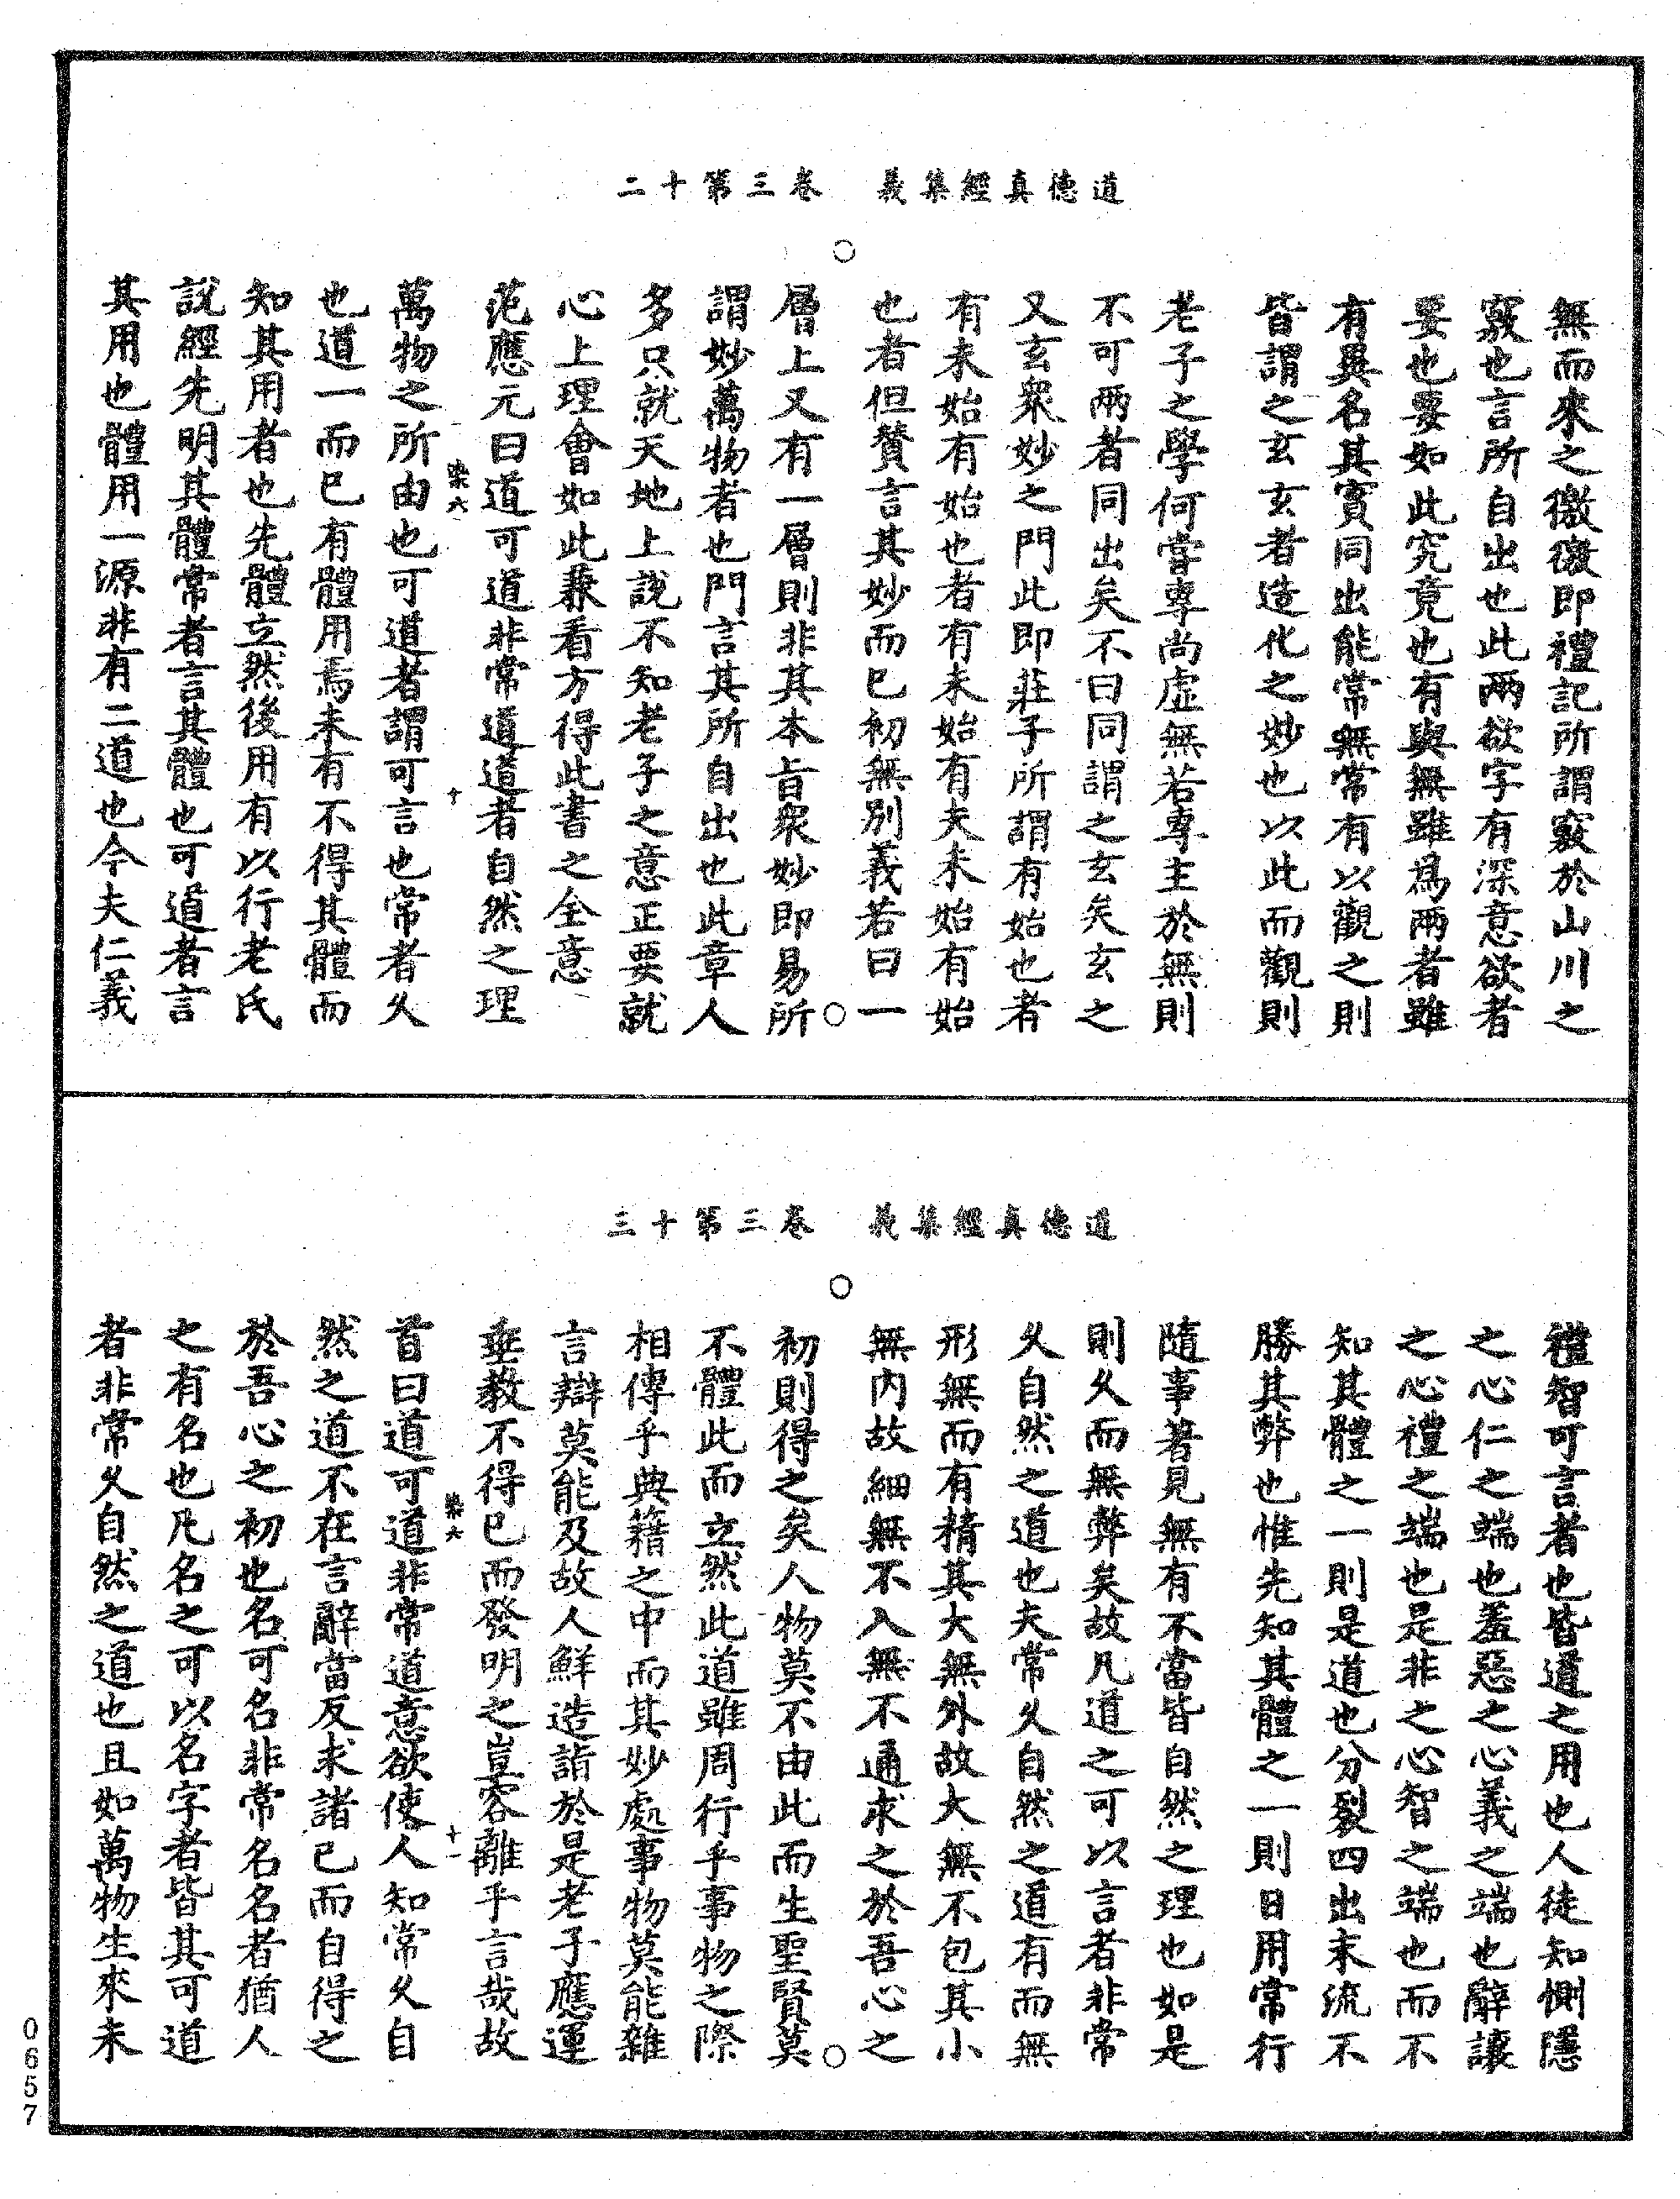 道德真經集義　卷三第十二
無而來之徼徼即禮記所謂竅於山川之
竅也言所自出也此兩欲字有深意欲者
要也要如此究竟也有與無雖爲兩者雖
有異名其實同出能常無常有以觀之則
皆謂之玄玄者造化之妙也以此而觀則
老子之學何嘗專尚虛無若專主於無則
不可兩者同出矣不曰同謂之玄矣玄之
又玄衆妙之門此即莊子所謂有始也者
有未始有始也者有未始有夫未始有始
也者但贊言其妙而已初無別義若曰一
層上又有一層則非其本旨衆妙即易所
謂妙萬物者也門言其所自出也此章人
多只就天地上說不知老子之意正要就
心上理會如此兼看方得此書之全意
范應元曰道可道非常道道者自然之理
染六　十
萬物之所由也可道者謂可言也常者久
也道一而已有體用焉未有不得其體而
知其用者也先體立然後用有以行老氏
說經先明其體常者言其體也可道者言
其用也體用一源非有二道也今夫仁義
道德真經集義　卷三第十三
禮智可言者也皆道之用也人徒知惻隱
之心仁之端也羞惡之心義之端也辭讓
之心禮之端也是非之心智之端也而不
知其體之一則是道也分裂四出末流不
勝其弊也惟先知其體之一則日用常行
隨事著見無有不當皆自然之理也如是
則久而無弊矣故凡道之可以言者非常
久自然之道也夫常久自然之道有而無
形無而有精其大無外故大無不包其小
無內故細無不入無不通求之於吾心之
初則得之矣人物莫不由此而生聖賢莫
不體此而立然此道雖周行乎事物之際
相傳乎典籍之中而其妙處事物莫能雜
言辯莫能及故人鮮造詣於是老子應運
垂教不得已而發明之豈容離乎言哉故
染六　十一
首曰道可道非常道意欲使人知常久自
然之道不在言辭當反求諸己而自得之
於吾心之初也名可名非常名名者猶人
之有名也凡名之可以名字者皆其可道
者非常久自然之道也且如萬物生來未
0657